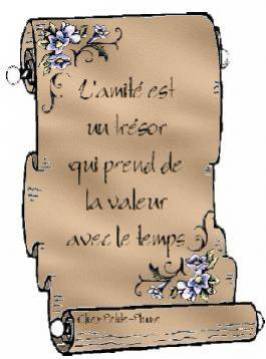 L'amitié est
un trésor
qui prend de
la valeur
avec le temps
Chez Petite-Plume